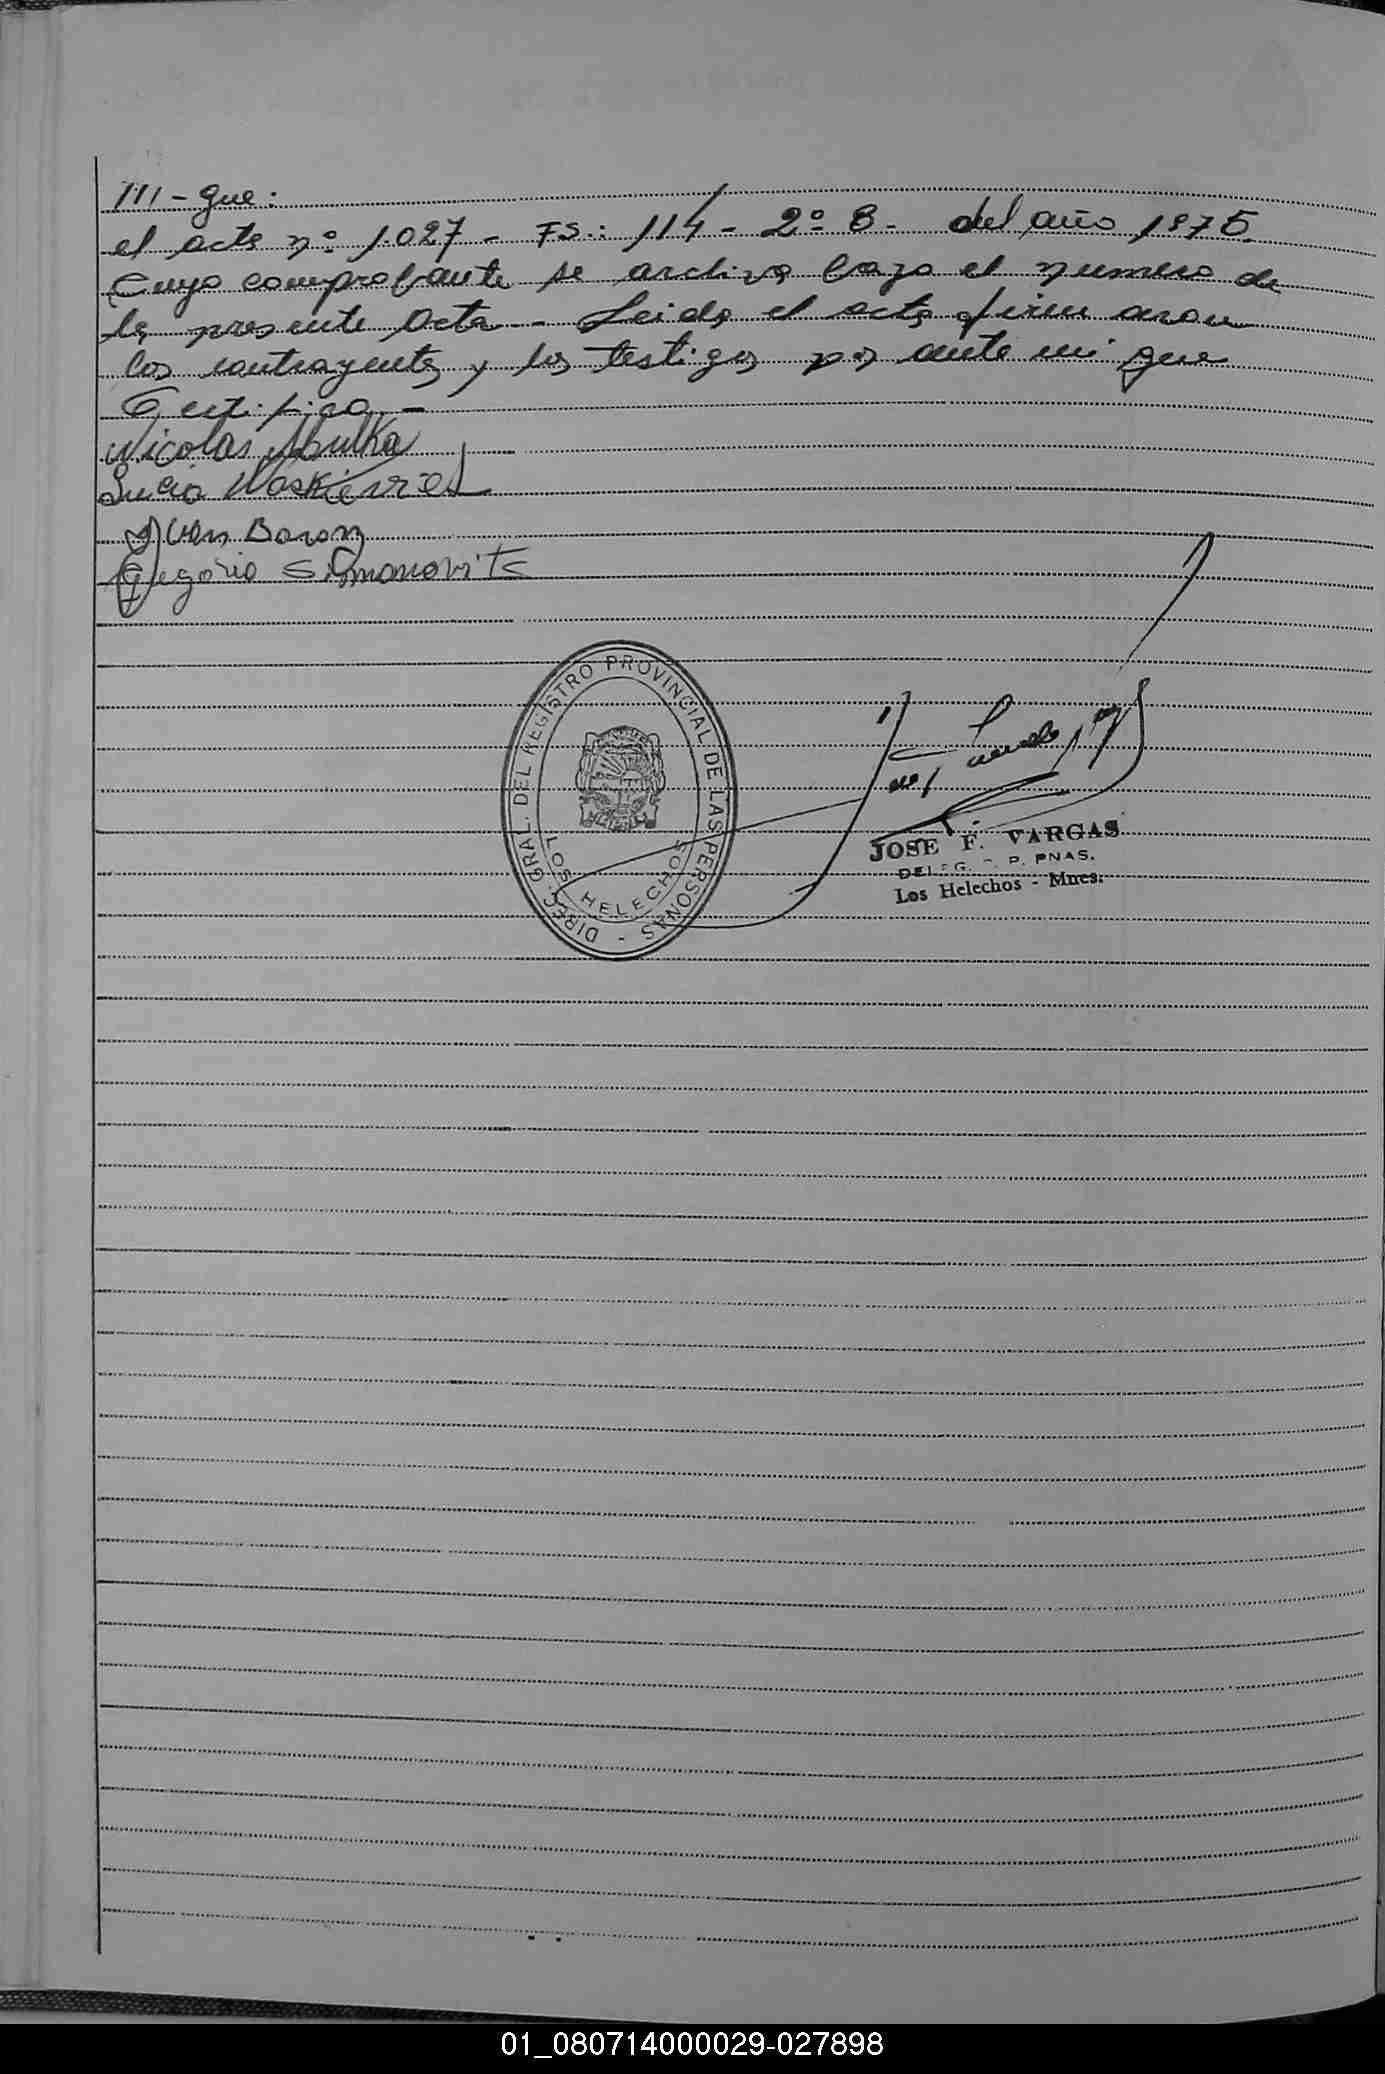 III - que:
el acta nº 1.027 - FS.: 114 - 2º B - del año 1975.
Cuyo comprobante se archiva bajo el numero de
la presente Acta - Leida el acta firmaron
los contrayentes y los testigos por ante mi que
Certifico. -
Nicolas
Lucia
Juan Baron
Gregorio Simonovits
DIREC. GRAL. DEL REGISTRO PROVINCIAL DE LAS PERSONAS -
LOS HELECHOS
JOSE F. VARGAS
DELEG. R. P. PNAS.
Los Helechos - Mnes.
01_080714000029-027898